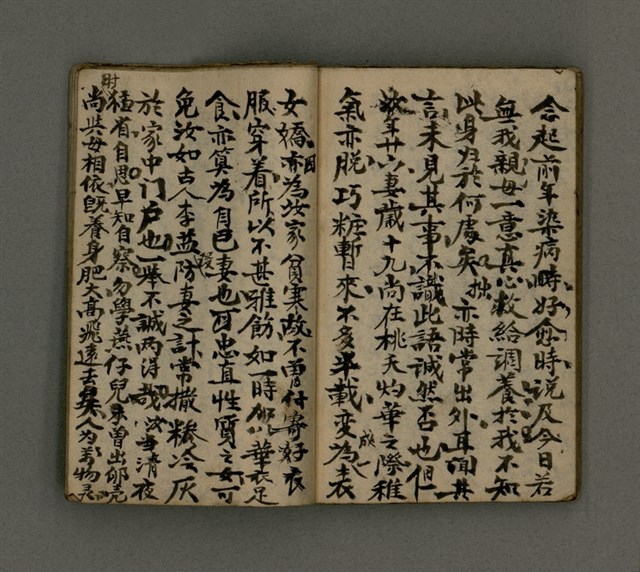 念起前年染病時好愈時说及今日若
無我親母一意真心救給調養於我不知
此身归於何處矣拙亦時常出外耳闻其
言未見其事不識此語誠然否也但
汝年廿六妻歲十九尚在桃夭灼華之際稚
氣亦脱巧粧暫來不多半載变為衣
女嬌亦為汝家貧寒故不曾付寄好衣
服穿着所以不甚雅飭如一時華衣足
食亦算為自己妻也可忠直性實之女可
免汝如古人李益防妻之計常撒糝冷灰
於家中门户也一舉不誠两得哉汝当清夜
猛省自思早知自察勿學燕仔兒未曾出郁壳
尚共母相依既養身肥大高飛遠去矣人为萬物灵